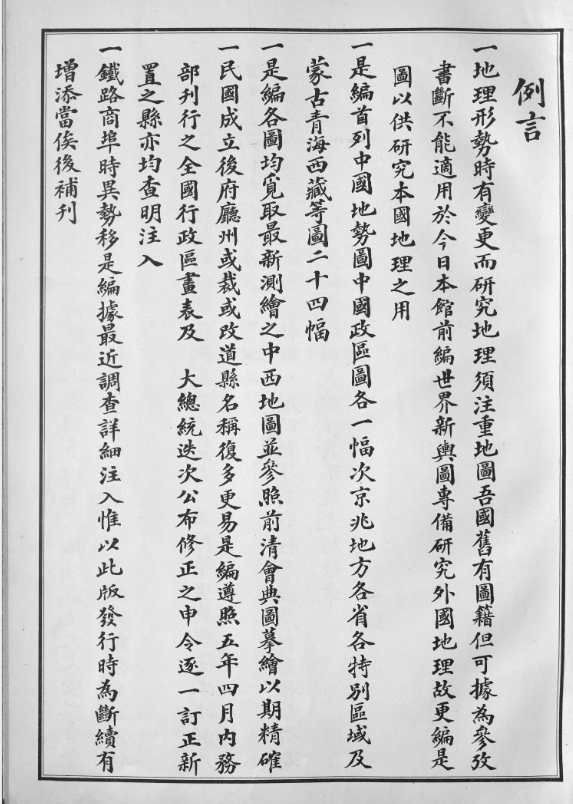 例言
一地理形勢時有變更而研究地理須注重地圖吾國舊有圖籍但可據為參攷
書斷不能適用於今日本館前編世界新輿圖專備研究外國地理故更編是
圖以供研究本國地理之用
一是編首列中國地勢圖中國政區圖各一幅次京兆地方各省各特別區域及
蒙古青海西藏等圖二十四幅
一是編各圖均覓取最新測繪之中西地圖並參照前清會典圖摹繪以期精確
一民國成立後府廳州或裁或改道縣名稱復多更易是編遵照五年四月內務
部刊行之全國行政區畫表及　大總統迭次公布修正之申令逐一訂正新
置之縣亦均查明注入
一鐵路商埠時異勢移是編據最近調查詳細注入惟以此版發行時為斷續有
增添當俟後補刊